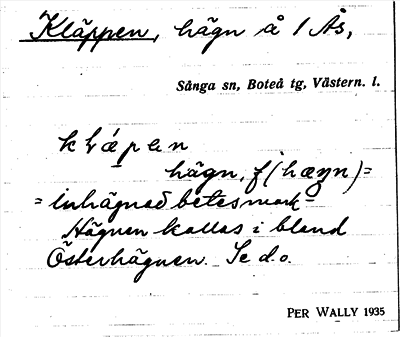 Kläppen, hägn å 1 Ås,
Sånga sn, Boteå tg, Västern. l.
hägn, f (hægn) =
= inhägnad betesmark
Hägnen kallas i bland
Österhägnen. Se d.o.
PER WALLY 1935